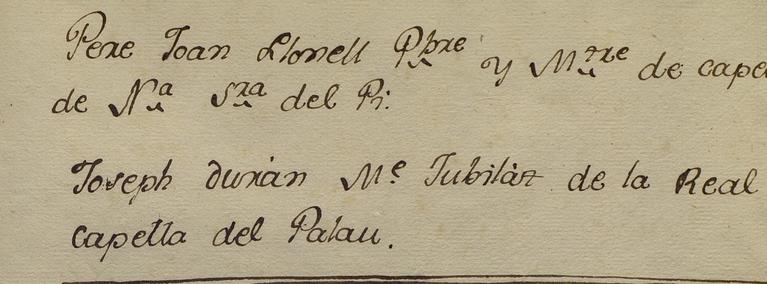 Pere Joan Llonell Pbre y Mtre de cape
de Na Sra del Pi.
Joseph duràn Me Jubilàt de la Real
capella del Palau.